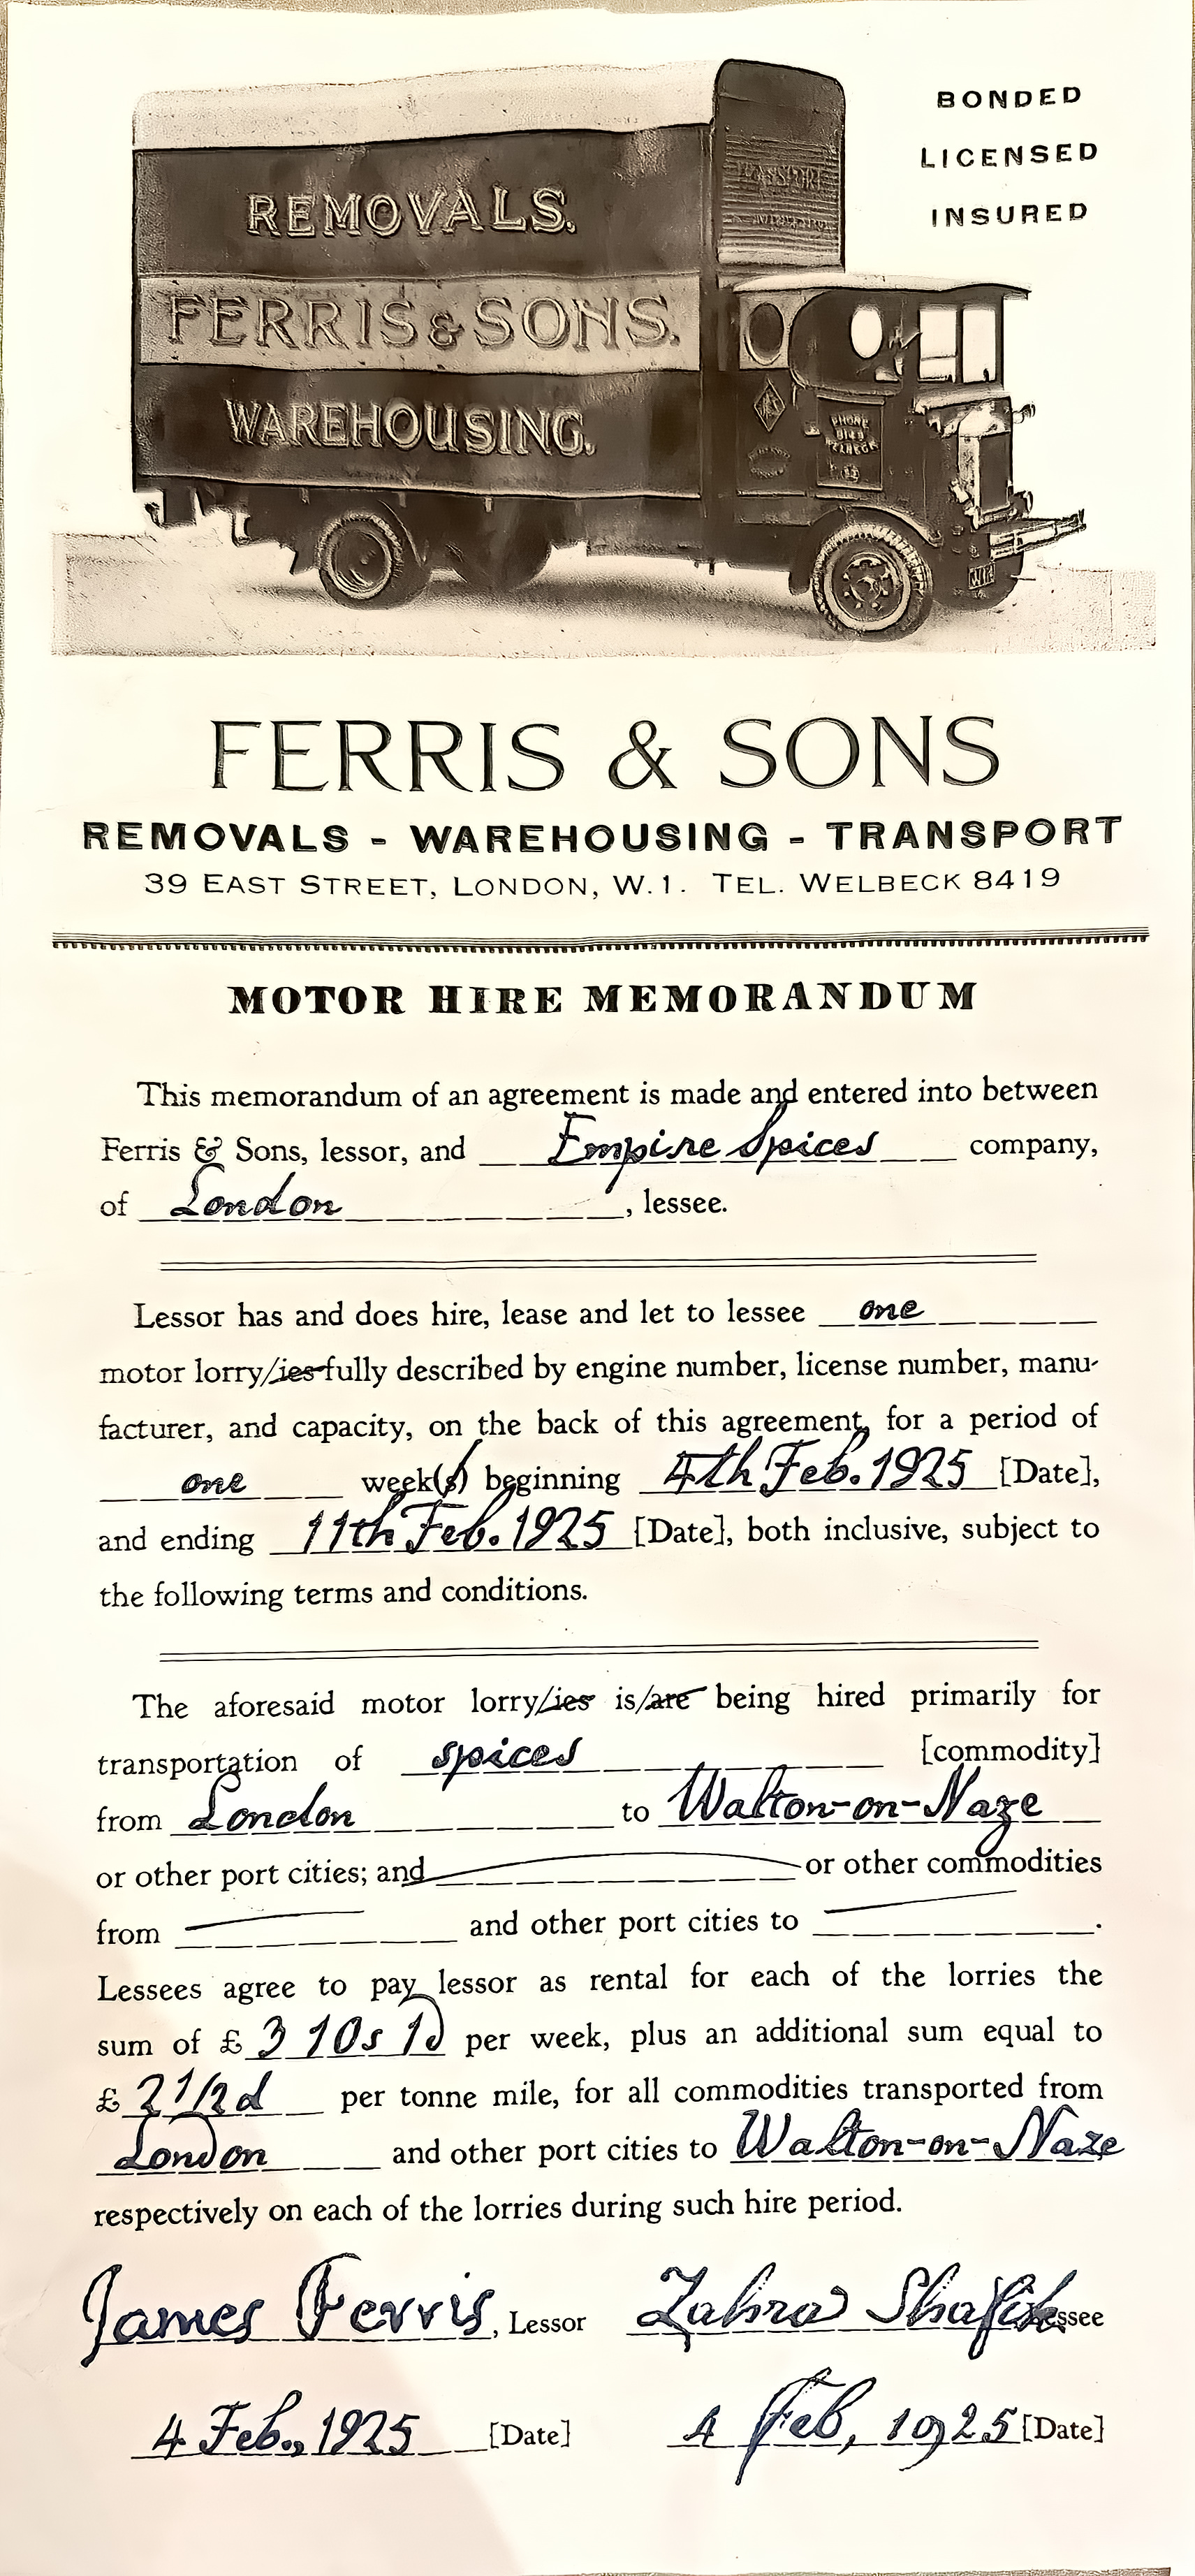 BONDED
LICENSED
INSURED
REMOVALS.
FERRIS & SONS.
WAREHOUSING.
PHONE
FERRIS & SONS
REMOVALS - WAREHOUSING - TRANSPORT
39 EAST STREET, LONDON, W.1. TEL. WELBECK 8419
MOTOR HIRE MEMORANDUM
This memorandum of an agreement is made and entered into between
Ferris & Sons, lessor, and Empire Spices company,
of London, lessee.
Lessor has and does hire, lease and let to lessee one
motor lorry/ies fully described by engine number, license number, manu-
facturer, and capacity, on the back of this agreement, for a period of
one week(s) beginning 4th Feb. 1925 [Date],
and ending 11th Feb. 1925 [Date], both inclusive, subject to
the following terms and conditions.
The aforesaid motor lorry/ies is/are being hired primarily for
transportation of spices [commodity]
from London to Walton-on-Naze
or other port cities; and or other commodities
from and other port cities to .
Lessees agree to pay lessor as rental for each of the lorries the
sum of £ 3 10s 1d per week, plus an additional sum equal to
£ 2 1/2 d per tonne mile, for all commodities transported from
London and other port cities to Walton-on-Naze
respectively on each of the lorries during such hire period.
James Ferris, Lessor Zahra Shafik Lessee
4 Feb., 1925 [Date] 4 Feb, 1925 [Date]